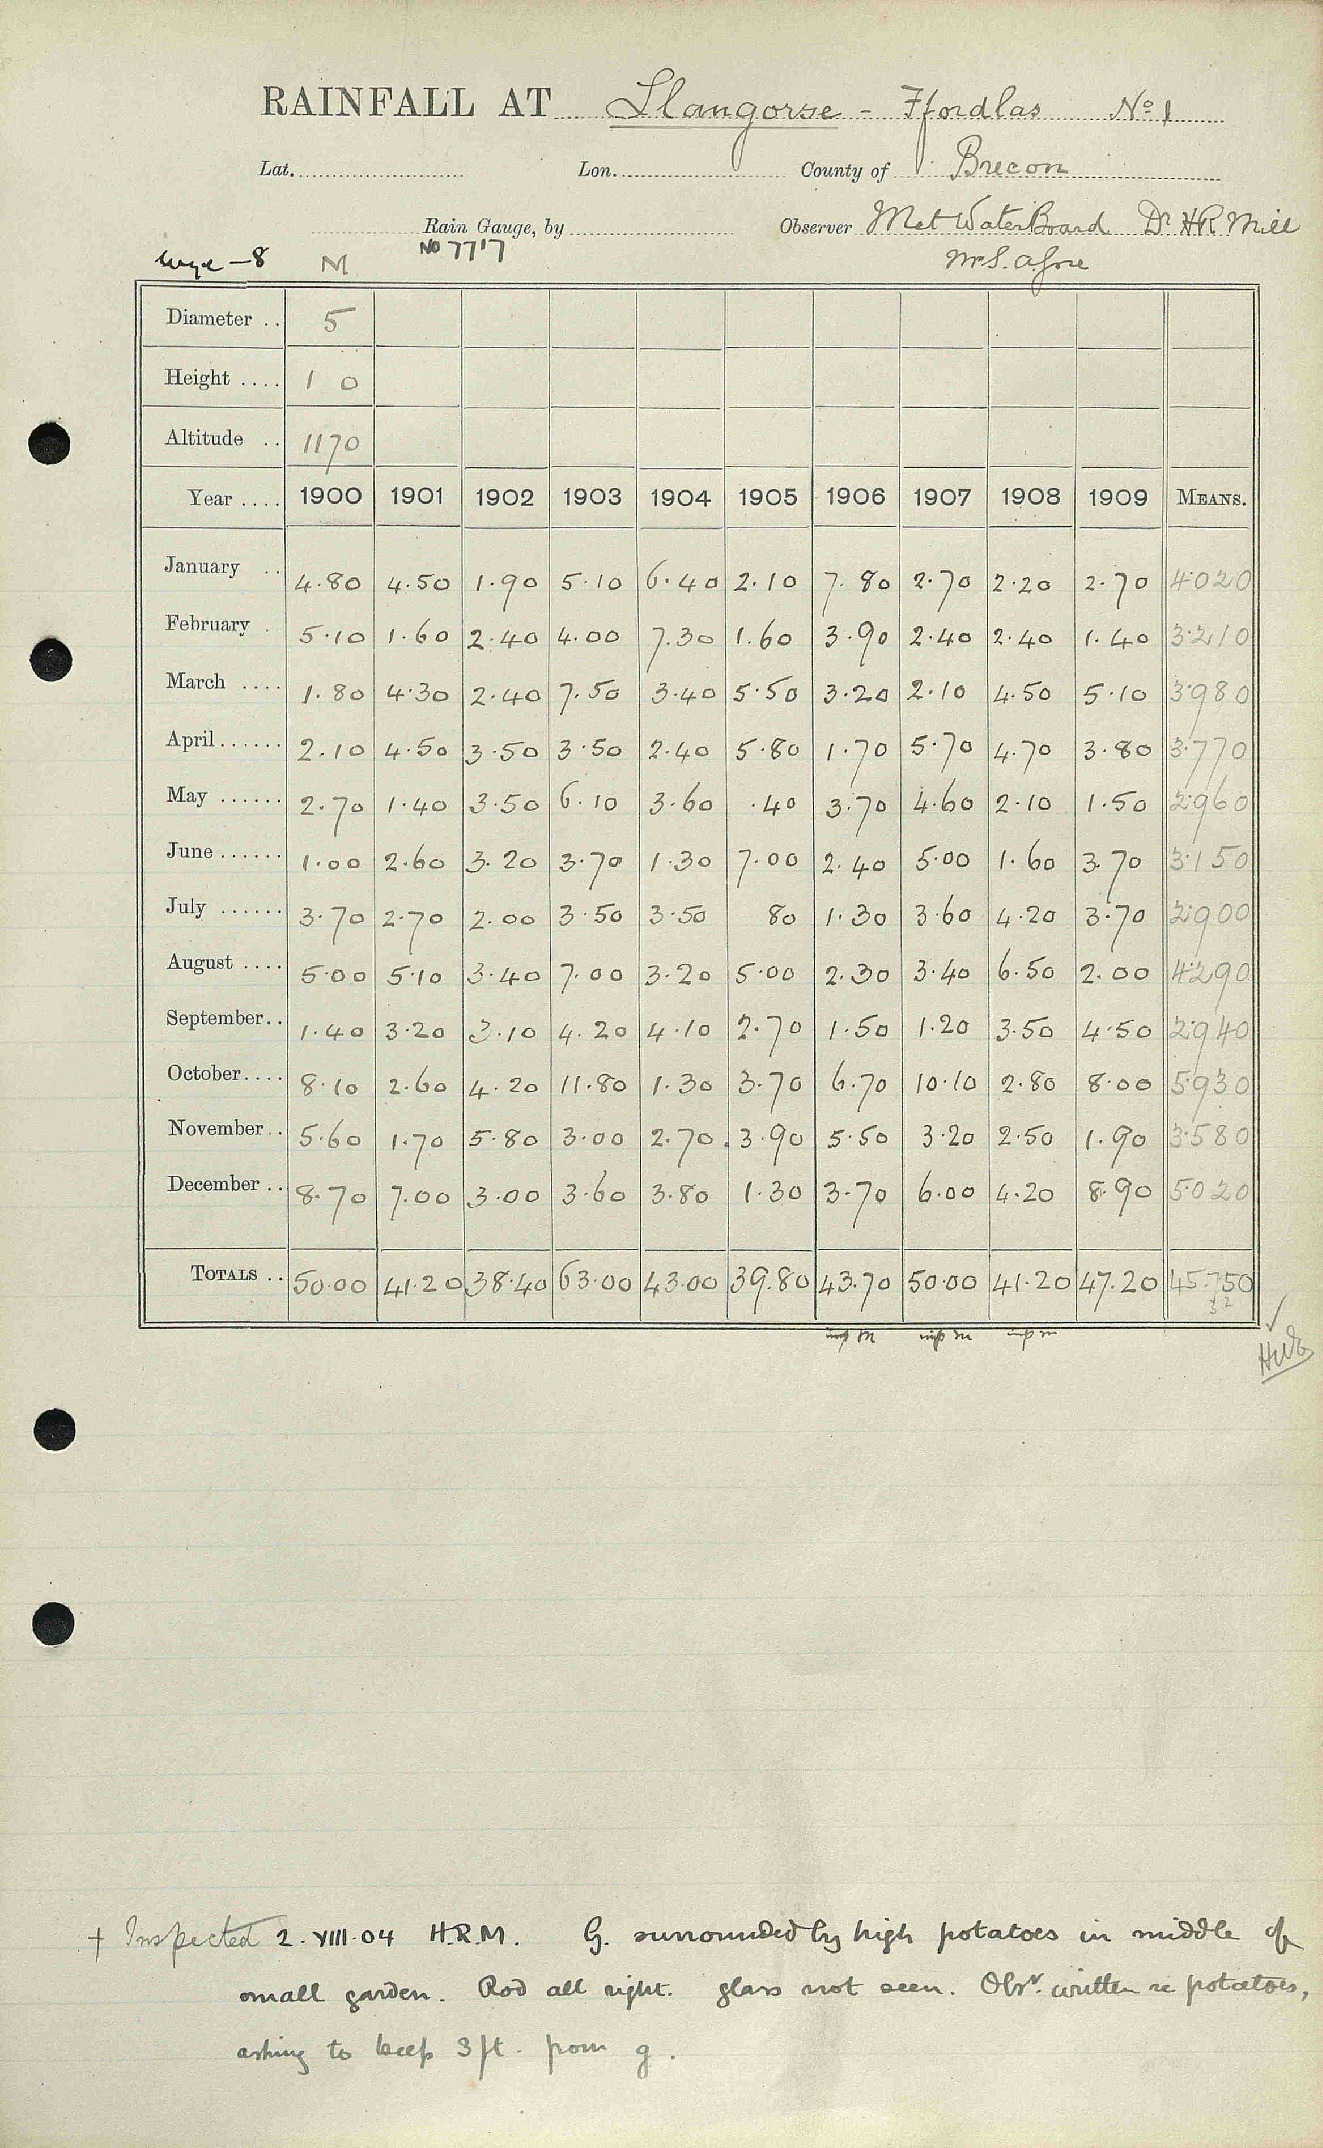 RAINFALL AT Llangorse - Ffordlas No 1
Lat. Lon. County of Brecon
Rain Gauge, by Observer Met Water Board Dr H R Mill
No 7717
Wye - 8 M
Diameter .. 5
Height .... 1 0
Altitude .. 1170
Year .... 1900 1901 1902 1903 1904 1905 1906 1907 1908 1909 MEANS.
January .. 4.80 4.50 1.90 5.10 6.40 2.10 7.80 2.70 2.20 2.70 4.020
February . 5.10 1.60 2.40 4.00 7.30 1.60 3.90 2.40 2.40 1.40 3.210
March .... 1.80 4.30 2.40 7.50 3.40 5.50 3.20 2.10 4.50 5.10 3.980
April...... 2.10 4.50 3.50 3.50 2.40 5.80 1.70 5.70 4.70 3.80 3.770
May ...... 2.70 1.40 3.50 6.10 3.60 .40 3.70 4.60 2.10 1.50 2.960
June...... 1.00 2.60 3.20 3.70 1.30 7.00 2.40 5.00 1.60 3.70 3.150
July ...... 3.70 2.70 2.00 3.50 3.50 80 1.30 3.60 4.20 3.70 2.900
August .... 5.00 5.10 3.40 7.00 3.20 5.00 2.30 3.40 6.50 2.00 4.290
September.. 1.40 3.20 3.10 4.20 4.10 2.70 1.50 1.20 3.50 4.50 2.940
October.... 8.10 2.60 4.20 11.80 1.30 3.70 6.70 10.10 2.80 8.00 5.930
November.. 5.60 1.70 5.80 3.00 2.70 3.90 5.50 3.20 2.50 1.90 3.580
December .. 8.70 7.00 3.00 3.60 3.80 1.30 3.70 6.00 4.20 8.90 5.020
TOTALS .. 50.00 41.20 38.40 63.00 43.00 39.80 43.70 50.00 41.20 47.20 45.750
† Inspected 2.VIII.04 H.R.M. G. surrounded by high potatoes in middle of
small garden. Rod all right. glass not seen. Obsr. written re potatoes,
asking to keep 3 ft. from g.